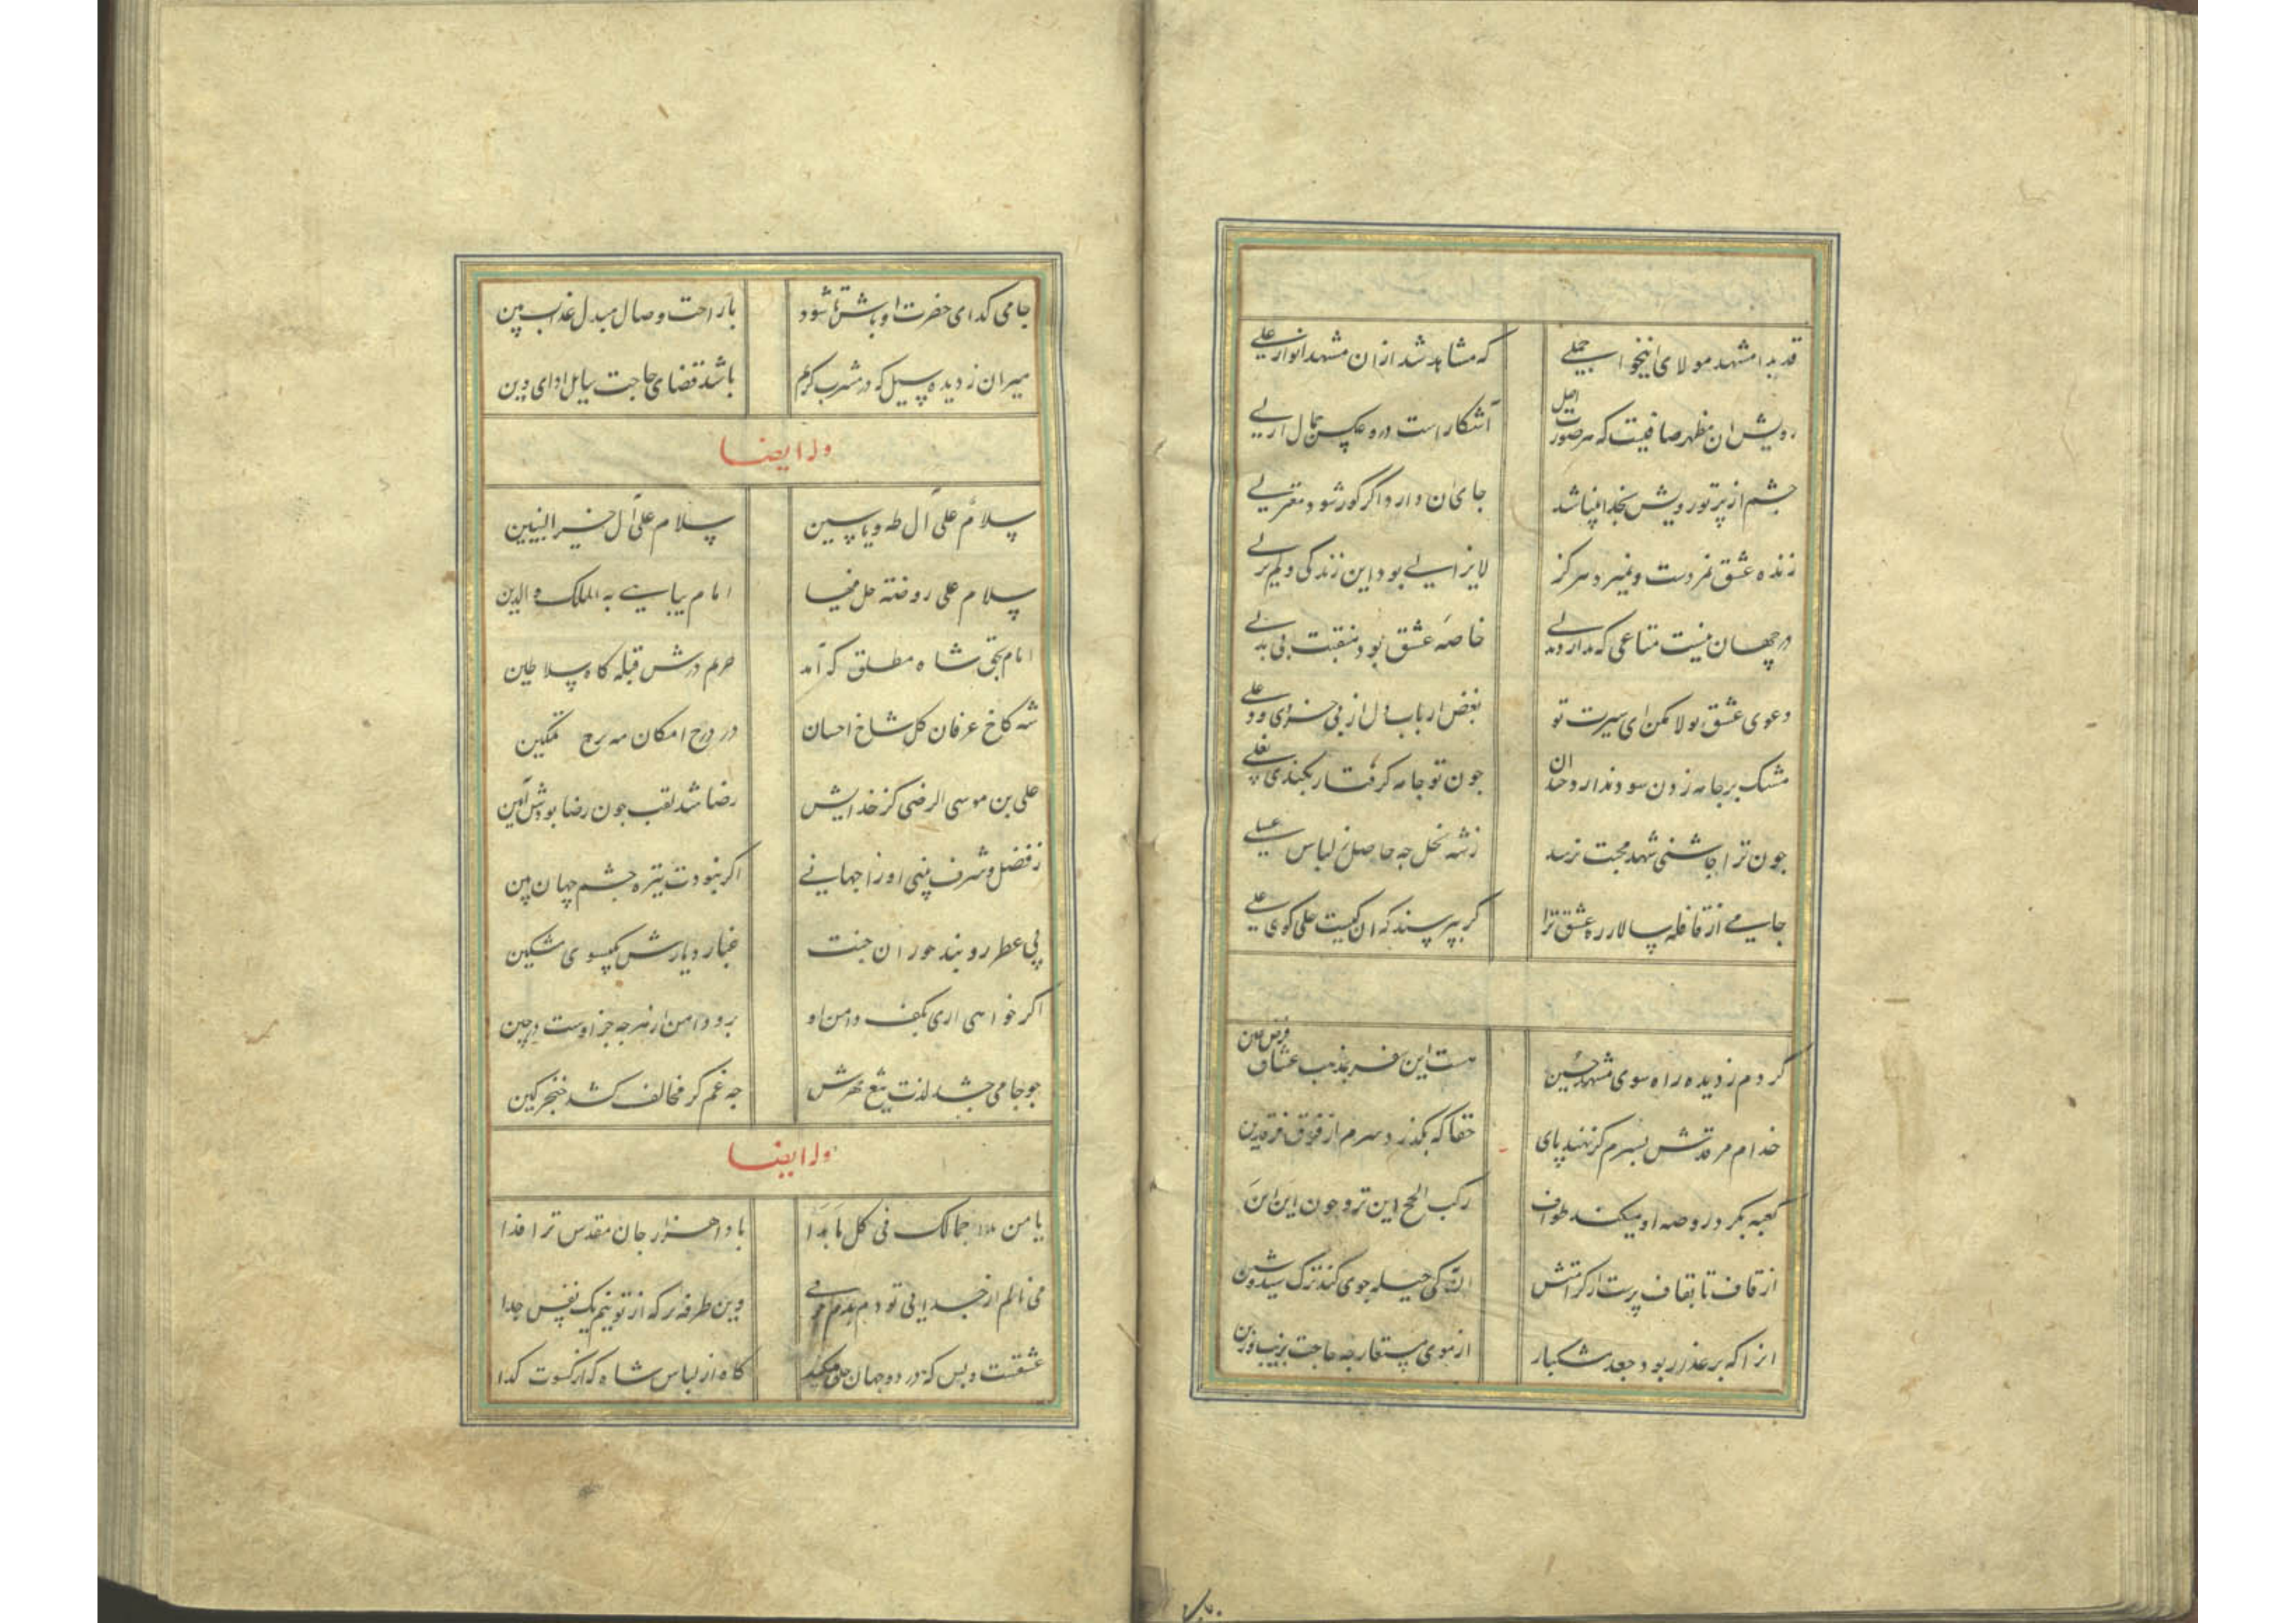 قد بدا مشهد مولای انیخوا جملی
که مشاهد شد ازان مشهد انوار علی
رویش ان مظهر صافیست که بر صورت اصل
آشکار است درو عکس جمال ازلی
چشم از پرتو رویش بخدا بینا شد
جای ان دارد اگر کور شود معتزلی
زنده عشق نمردست و نمیرد هرکز
لایزالی بود این زندکی و لم یزلی
در جهان نیست متاعی که ندارد بدلی
خاصه عشق بود منقبت بی بدلی
دعوی عشق و تولا مکن ای سیرت تو
بغض ارباب دل از بی خردی و دغلی
مشک بر جامه زدن سود ندارد چندان
جون تو جامه کرفتار بکند بغلی
جون ترا چاشنی شهد محبت نرسد
زشه نحل چه حاصل ز لباس عسلی
جامی از قافله سالار ره عشق ترا
کر بپرسند که ان کیست علی کوی علی
کردم ز دیده راه سوی مشهد حسین
هست این سفر بمذهب عشاق فرض عین
خدام مرقدش بسرم کر نهند پای
حقا که بکذرد سرم از فرق فرقدین
کعبه بکرد روضه او میکند طواف
رکب الحجیج این تروحون این این
از قاف تا بقاف پرست از کرامتش
ان به که حیله جوی کند ترک شید و شین
انرا که بر عذار بود جعد مشکبار
از موی مستعار چه حاجت بزیب و زین
جامی کدای حضرت او باش تا شود
با راحت وصال مبدل عذاب بین
میران ز دیده سیل که در مشرب کریم
باشد قضای حاجت سایل ادای دین
وله ایضا
سلام علی آل طه و یاسین
سلام علی آل خیر النبیین
سلام علی روضه حل فیها
امام یباهی به الملک و الدین
امام بحق شاه مطلق که آمد
حریم درش قبله کاه سلاطین
شه کاخ عرفان کل شاخ احسان
در درج امکان مه برج تمکین
علی بن موسی الرضی کز خدایش
رضا شد لقب جون رضا بودش آیین
ز فضل و شرف بینی او را جهانی
اکر نبودت تیره چشم جهان بین
پی عطر روبند حوران جنت
غبار دیارش بکیسوی مشکین
اکر خواهی اری بکف دامن او
برو دامن از هرجه جز اوست درچین
جو جامی چشد لذت تیغ مهرش
جه غم کر مخالف کشد خنجر کین
وله ایضا
یا من بدا جمالک فی کل ما بدا
بادا هزار جان مقدس ترا فدا
می نالم از جدایی تو دم بدم جو نی
وین طرفه تر که از تو نیم یک نفس جدا
عشقست و بس که در دو جهان جلوه میکند
کاه از لباس شاه و که از کسوت کدا